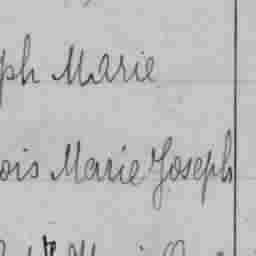 ph Marie
ois Marie Joseph